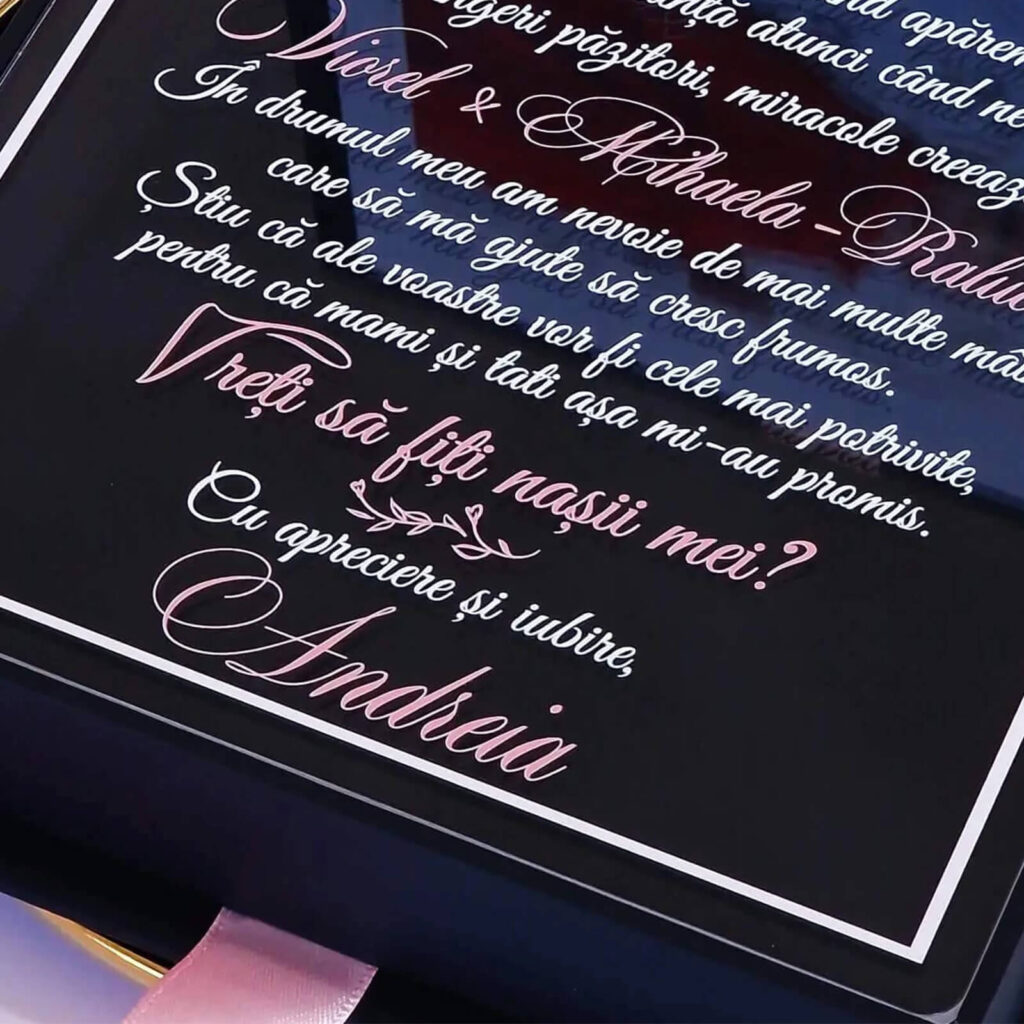 apărem
atunci când ne
păzitori, miracole creează
Viorel & Mihaela-Raluca
În drumul meu am nevoie de mai multe
care să mă ajute să cresc frumos.
Știu că ale voastre vor fi cele mai potrivite,
pentru că mami și tati așa mi-au promis.
Vreți să fiți nașii mei?
Cu apreciere și iubire,
Andreia